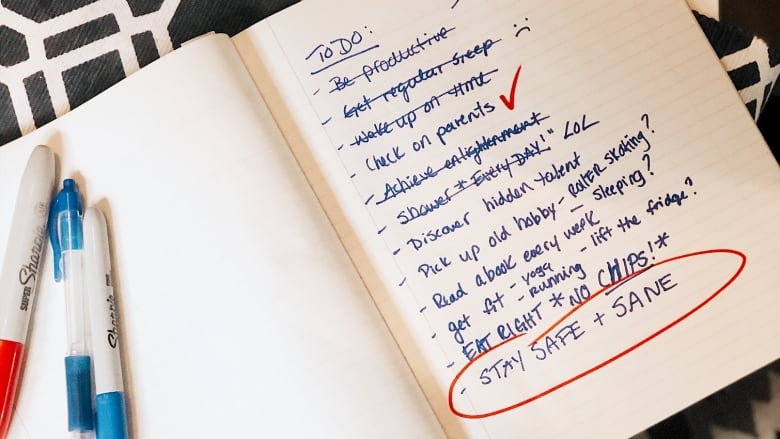 TO DO:
- Be productive
- Get regular sleep :(
- Wake up on time
- Check on parents ✓
- Achieve enlightenment
- Shower * EVERY DAY!" LOL
- Discover hidden talent
- Pick up old hobby - roller skating?
- sleeping?
- Read a book every week
- get fit - yoga - lift the fridge?
- running
- EAT RIGHT *NO CHIPS!*
- STAY SAFE + SANE
SUPER Sharpie
Sharpie